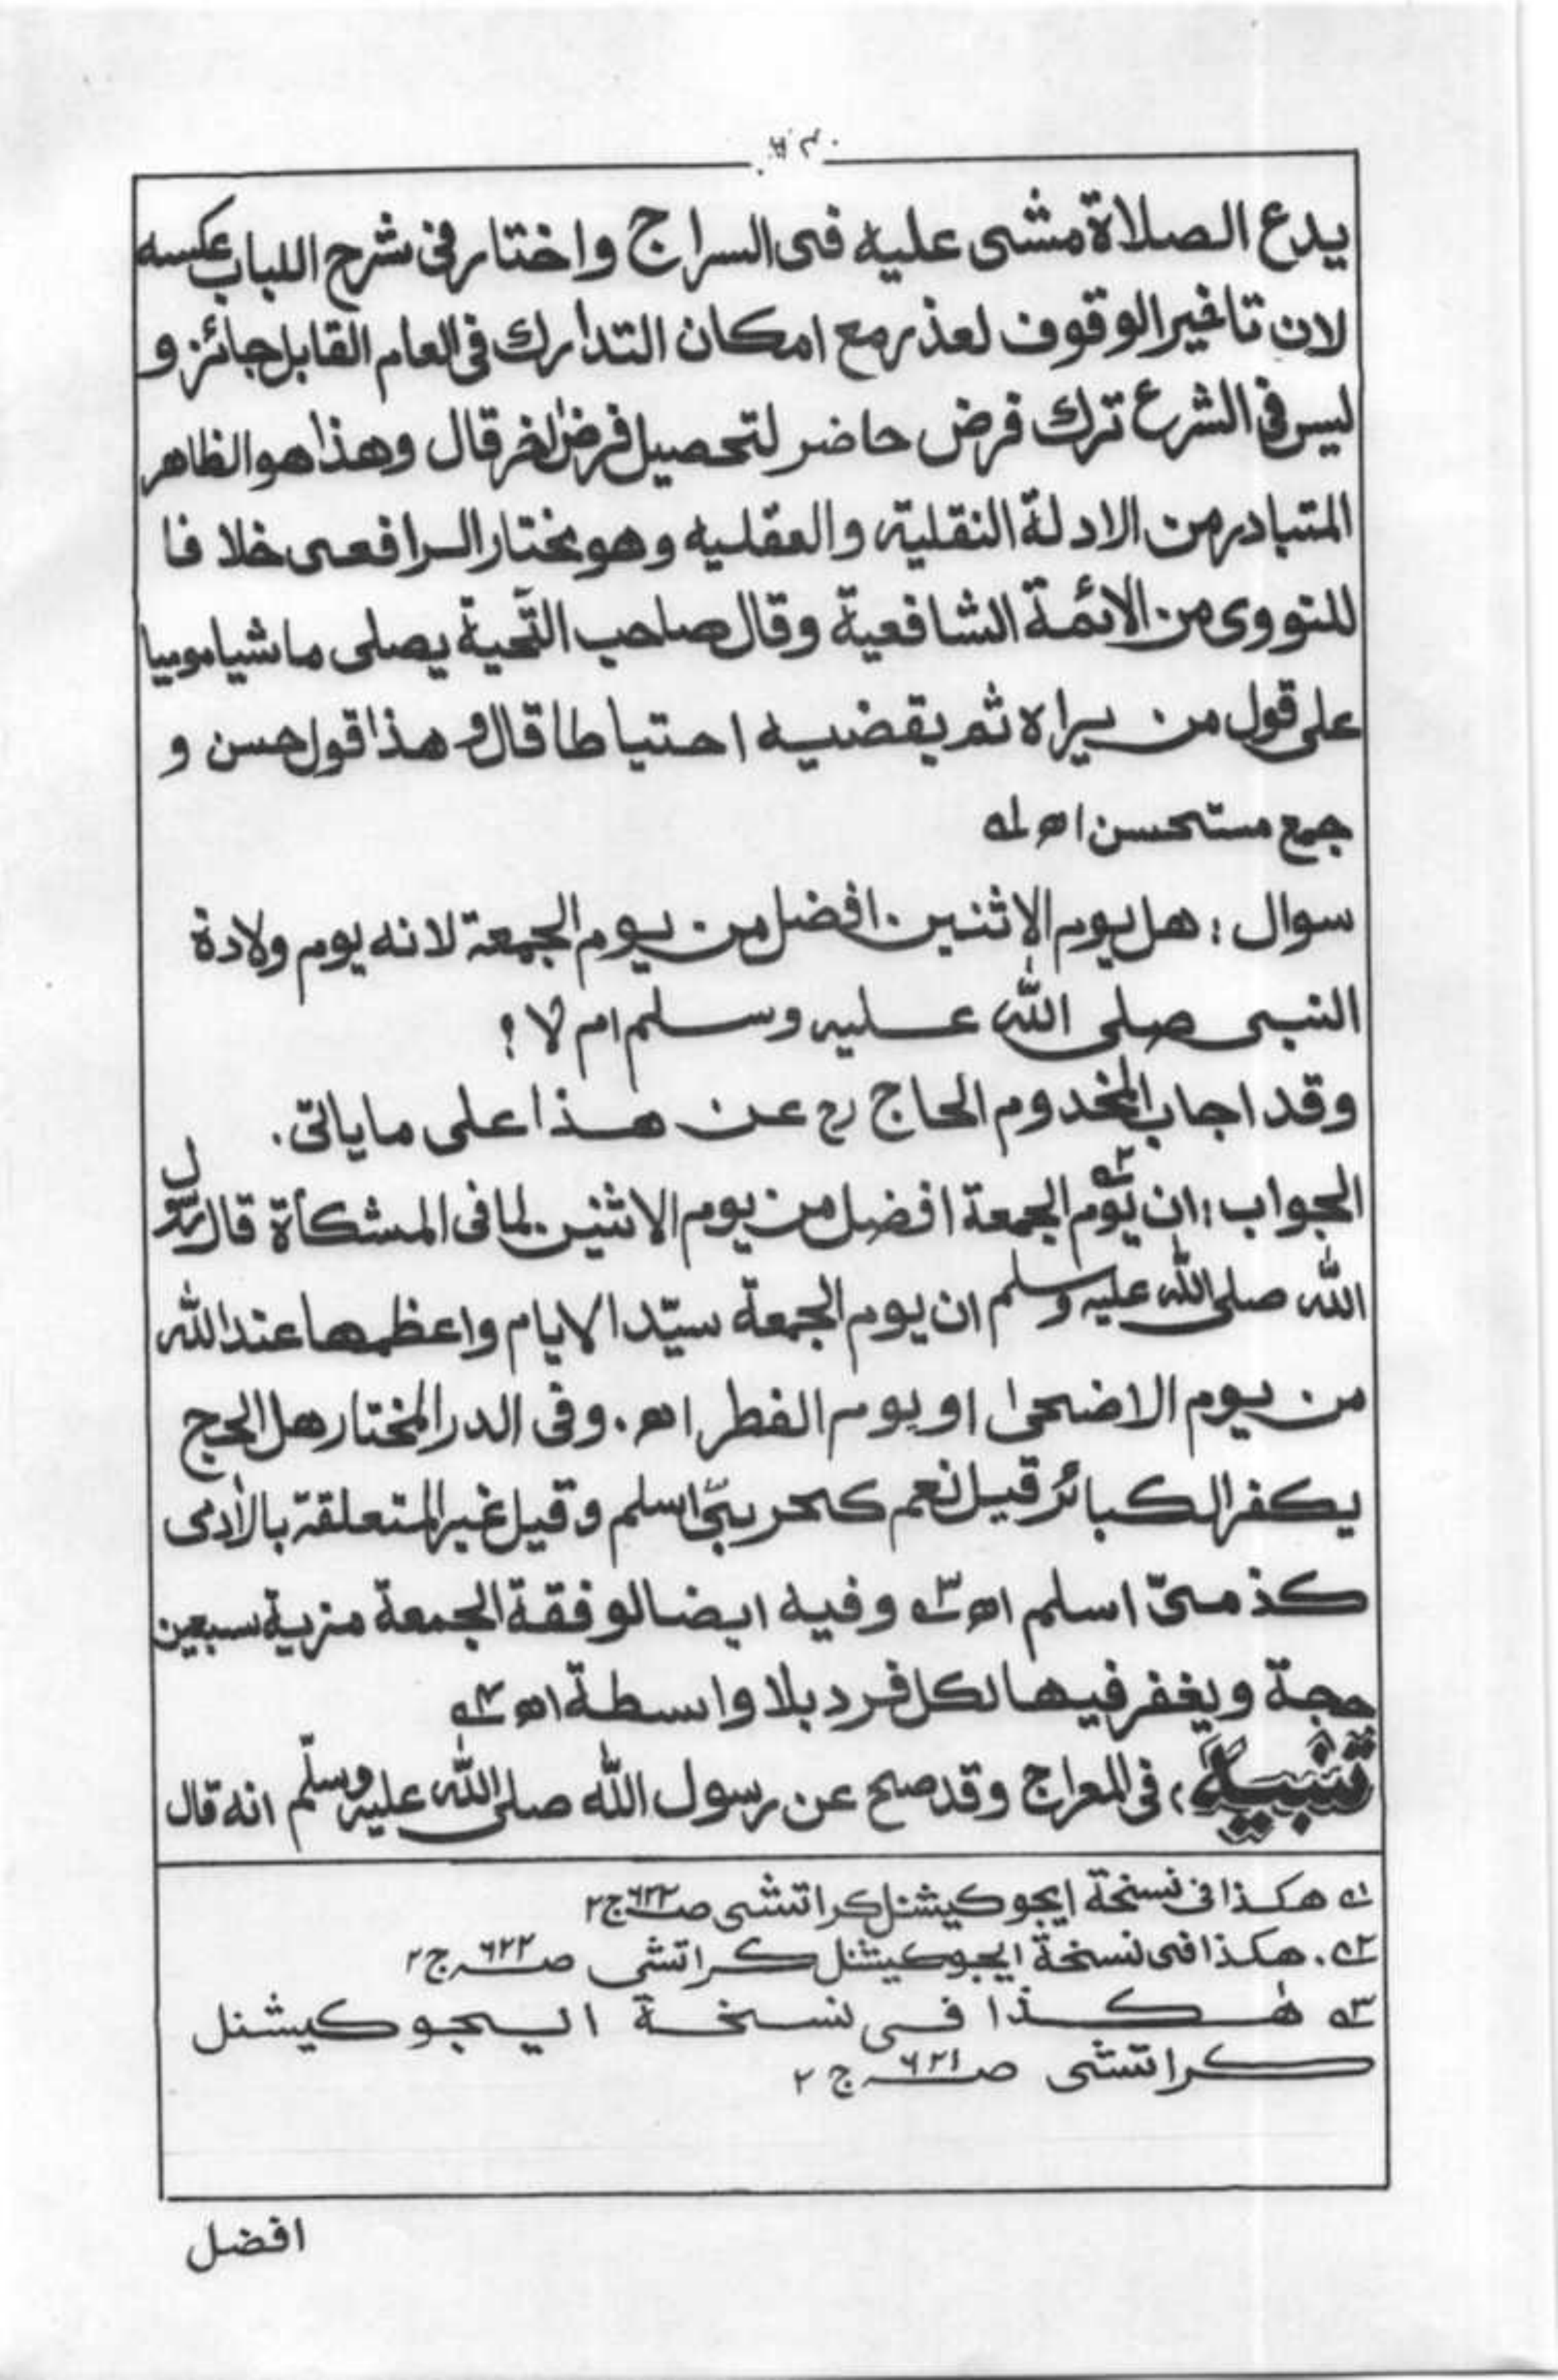 يدع الصلاة مشى عليه فى السراج واختار فى شرح اللباب عكسه
لان تاخير الوقوف لعذر مع امكان التدارك فى العام القابل جائز و
ليس فى الشرع ترك فرض حاضر لتحصيل فرض اٰخر قال وهذا هو الظاهر
المتبادر من الادلة النقلية والعقليه وهو مختار الرافعى خلافا
للنووى من الائمة الشافعية وقال صاحب التحية يصلى ماشيا موميا
على قول من يراه ثم يقضيه احتياطا قال و هذا قول حسن و
جمع مستحسن اھ لہ
سوال : هل يوم الاثنين افضل من يوم الجمعة لانه يوم ولادة
النبى صلى الله عليه وسلم ام لا ؟
وقد اجاب المخدوم الحاج رح عن هذا على ما ياتى .
الجواب : ان يوم ٢ الجمعة افضل من يوم الاثنين لما فى المشكأة قال رسول
الله صلى الله عليه وسلم ان يوم الجمعة سيّد الايام واعظمها عند الله
من يوم الاضحىٰ او يوم الفطر اھ . وفى الدر المختار هل الحج
يكفر الكبائر قيل نعم كحربىّ اسلم وقيل غير المتعلقة بالاٰدمى
كذمىّ اسلم اھ ٣ وفيه ايضا لوقفة الجمعة مزية سبعين
حجة ويغفر فيها لكل فرد بلا واسطة اھ ٤
تنبيه ، فى المعراج وقد صح عن رسول الله صلى الله عليه وسلّم انه قال
١ هكذا فى نسخة ايجوكيشنل كراتشى ص ٦٢٢ ج ٢
٢ . هكذا فى نسخة ايجوكيشنل كراتشى ص ٦٢٢ ج ٢
٣ هٰكذا فى نسخة ايجوكيشنل
كراتشى ص ٦٢١ ج ٢
افضل